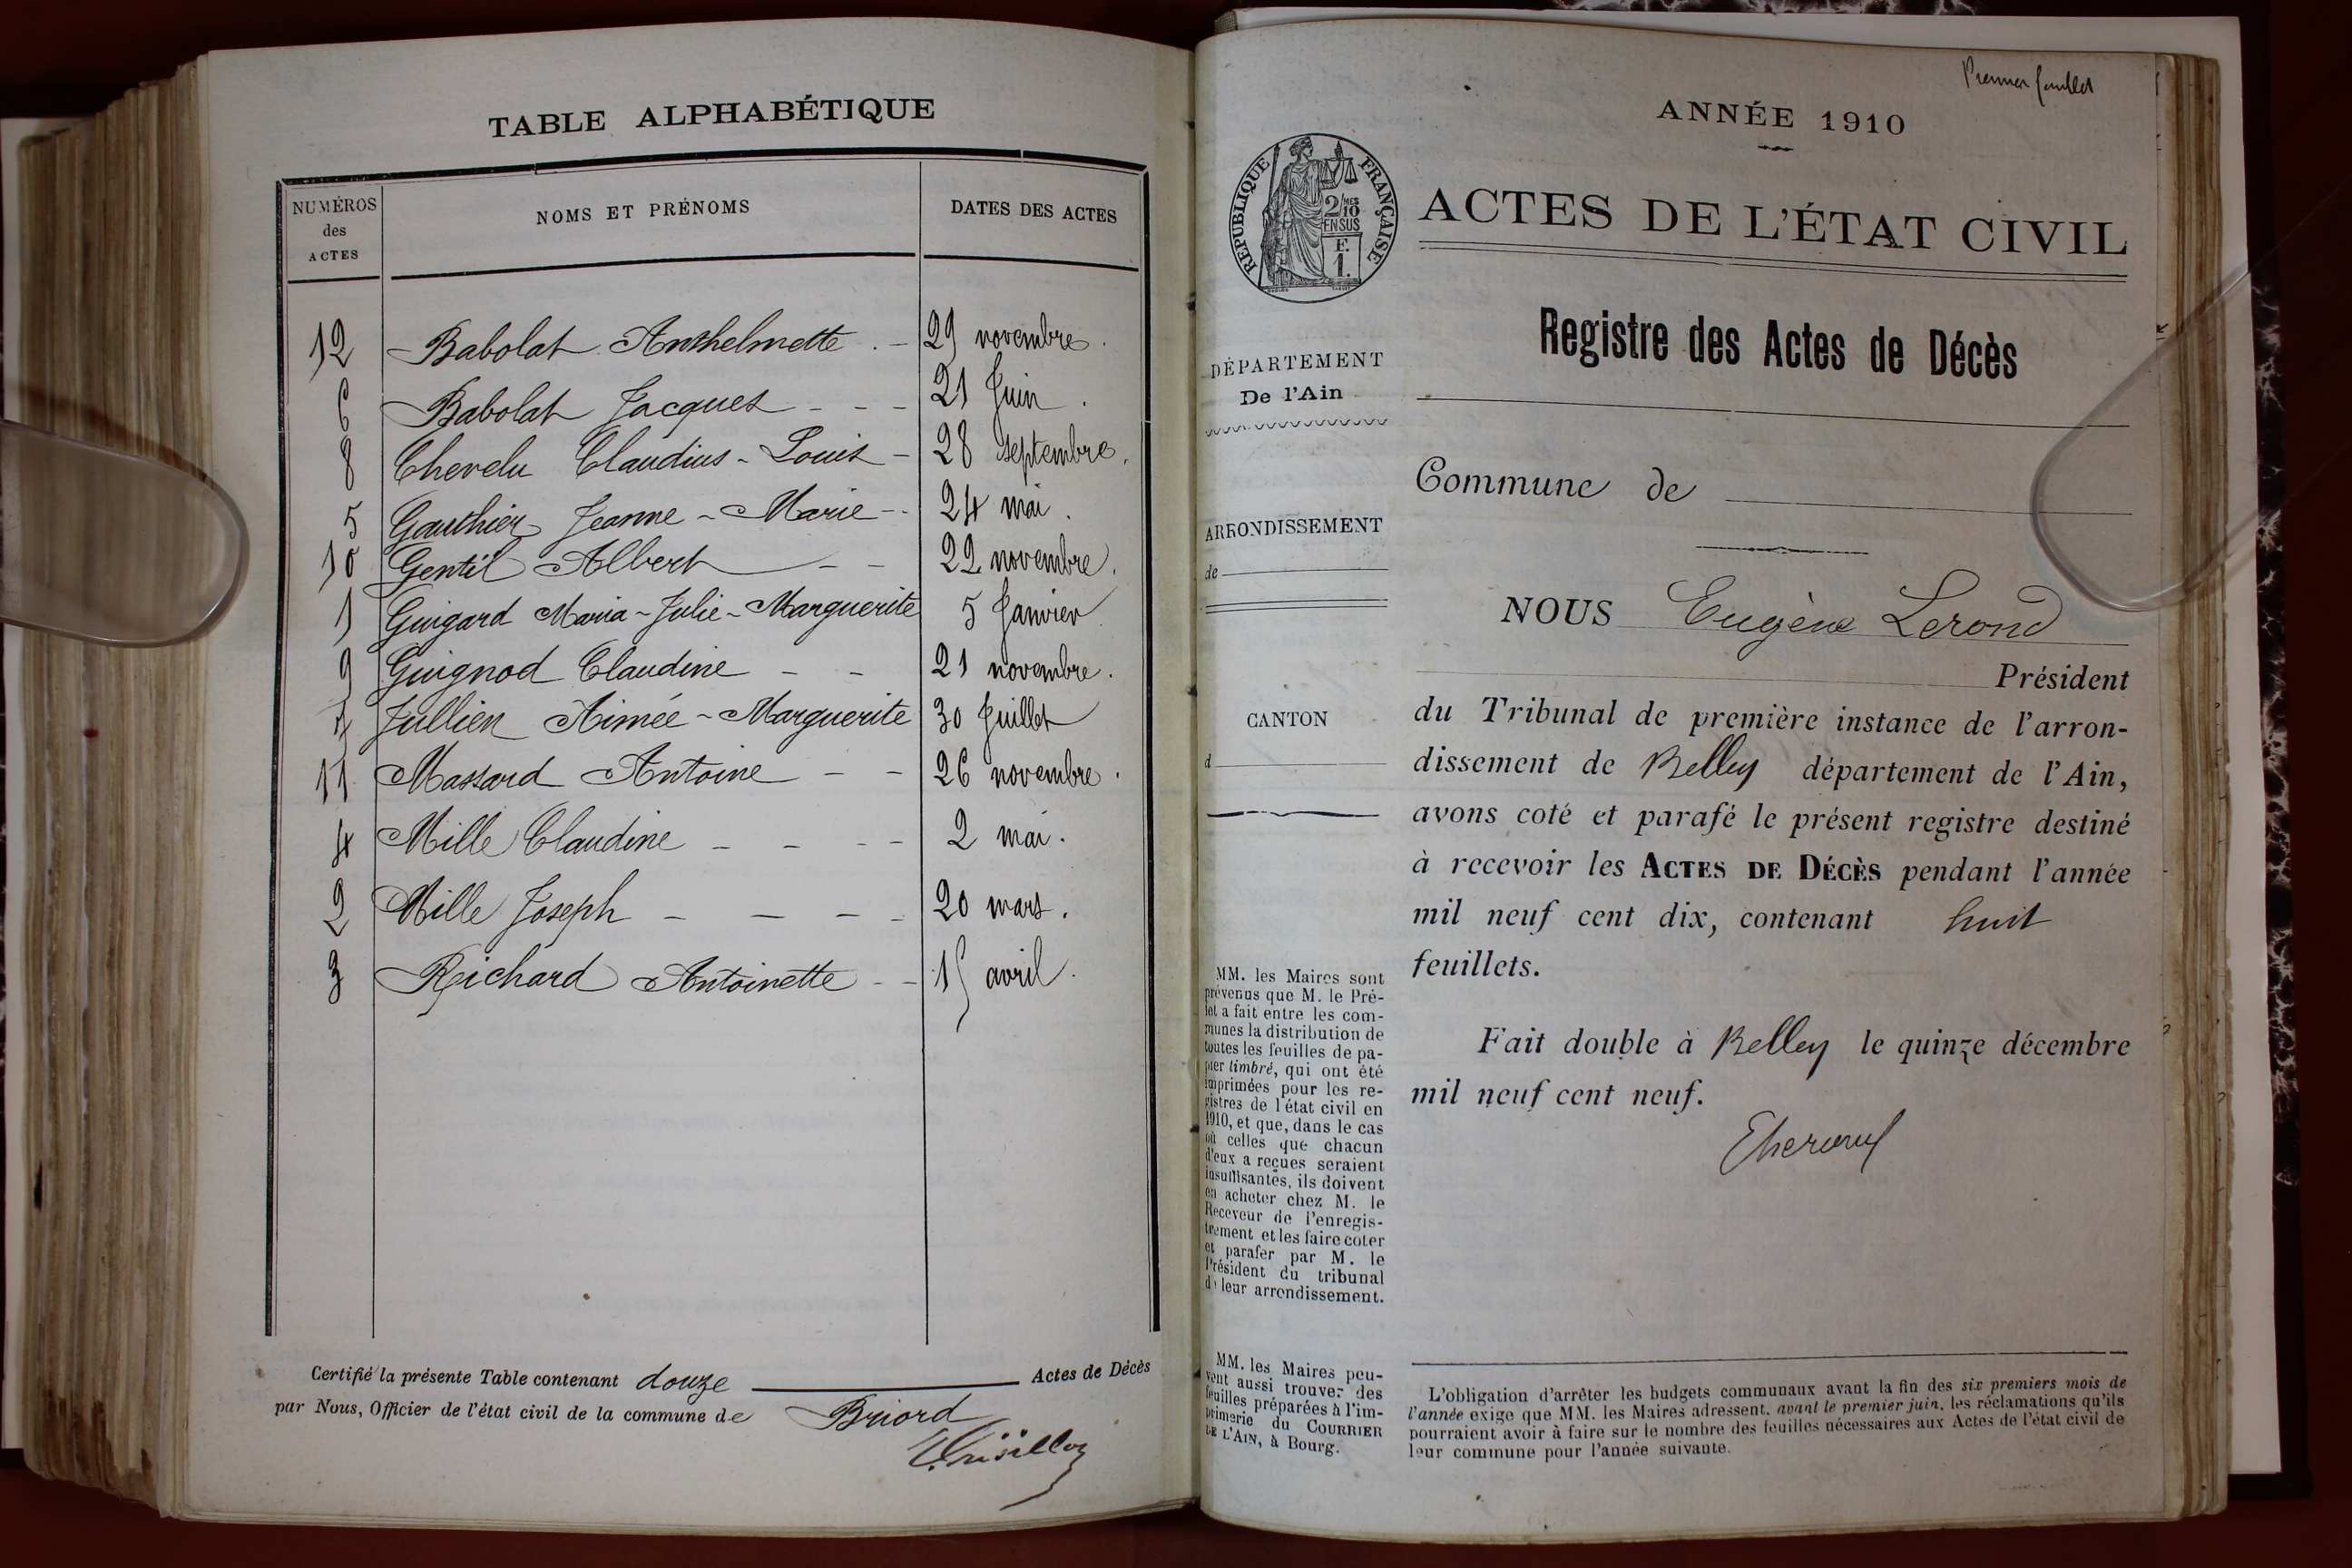 TABLE ALPHABÉTIQUE
NUMÉROS des ACTES NOMS ET PRÉNOMS DATES DES ACTES
12 Babolat Anthelmette . - 29 novembre.
6 Babolat Jacques - - - 21 Juin.
8 Chevelu Claudius - Louis - 28 septembre.
5 Gauthier Jeanne - Marie - - 24 mai.
10 Gentil Albert - - 22 novembre.
1 Guigard Maria - Julie - Marguerite 5 Janvier
9 Guignod Claudine - - 21 novembre.
7 Jullien Aimée - Marguerite 30 Juillet
11 Massard Antoine - - 26 novembre.
4 Mille Claudine - - - - 2 mai.
2 Mille Joseph - - - - 20 mars.
3 Richard Antoinette - - 15 avril.
Certifié la présente Table contenant douze Actes de Décès
par Nous, Officier de l'état civil de la commune de Briord
Premier feuillet
ANNÉE 1910
RÉPUBLIQUE FRANÇAISE
2/10 MES
EN SUS
F.
1.
ACTES DE L'ÉTAT CIVIL
Registre des Actes de Décès
DÉPARTEMENT
De l'Ain
Commune de
ARRONDISSEMENT
de
NOUS Eugène Lerond
Président
CANTON
d
du Tribunal de première instance de l'arron-
dissement de Belley département de l'Ain,
avons coté et parafé le présent registre destiné
à recevoir les ACTES DE DÉCÈS pendant l'année
mil neuf cent dix, contenant huit
feuillets.
Fait double à Belley le quinze décembre
mil neuf cent neuf.
MM. les Maires sont
prévenus que M. le Pré-
fet a fait entre les com-
munes la distribution de
toutes les feuilles de pa-
pier timbré, qui ont été
imprimées pour les re-
gistres de l'état civil en
1910, et que, dans le cas
où celles que chacun
d'eux a reçues seraient
insuffisantes, ils doivent
en acheter chez M. le
Receveur de l'enregis-
trement et les faire coter
et parafer par M. le
Président du tribunal
de leur arrondissement.
MM. les Maires peu-
vent aussi trouver des
feuilles préparées à l'im-
primerie du COURRIER
DE L'AIN, à Bourg.
L'obligation d'arrêter les budgets communaux avant la fin des six premiers mois de
l'année exige que MM. les Maires adressent, avant le premier juin, les réclamations qu'ils
pourraient avoir à faire sur le nombre des feuilles nécessaires aux Actes de l'état civil de
leur commune pour l'année suivante.